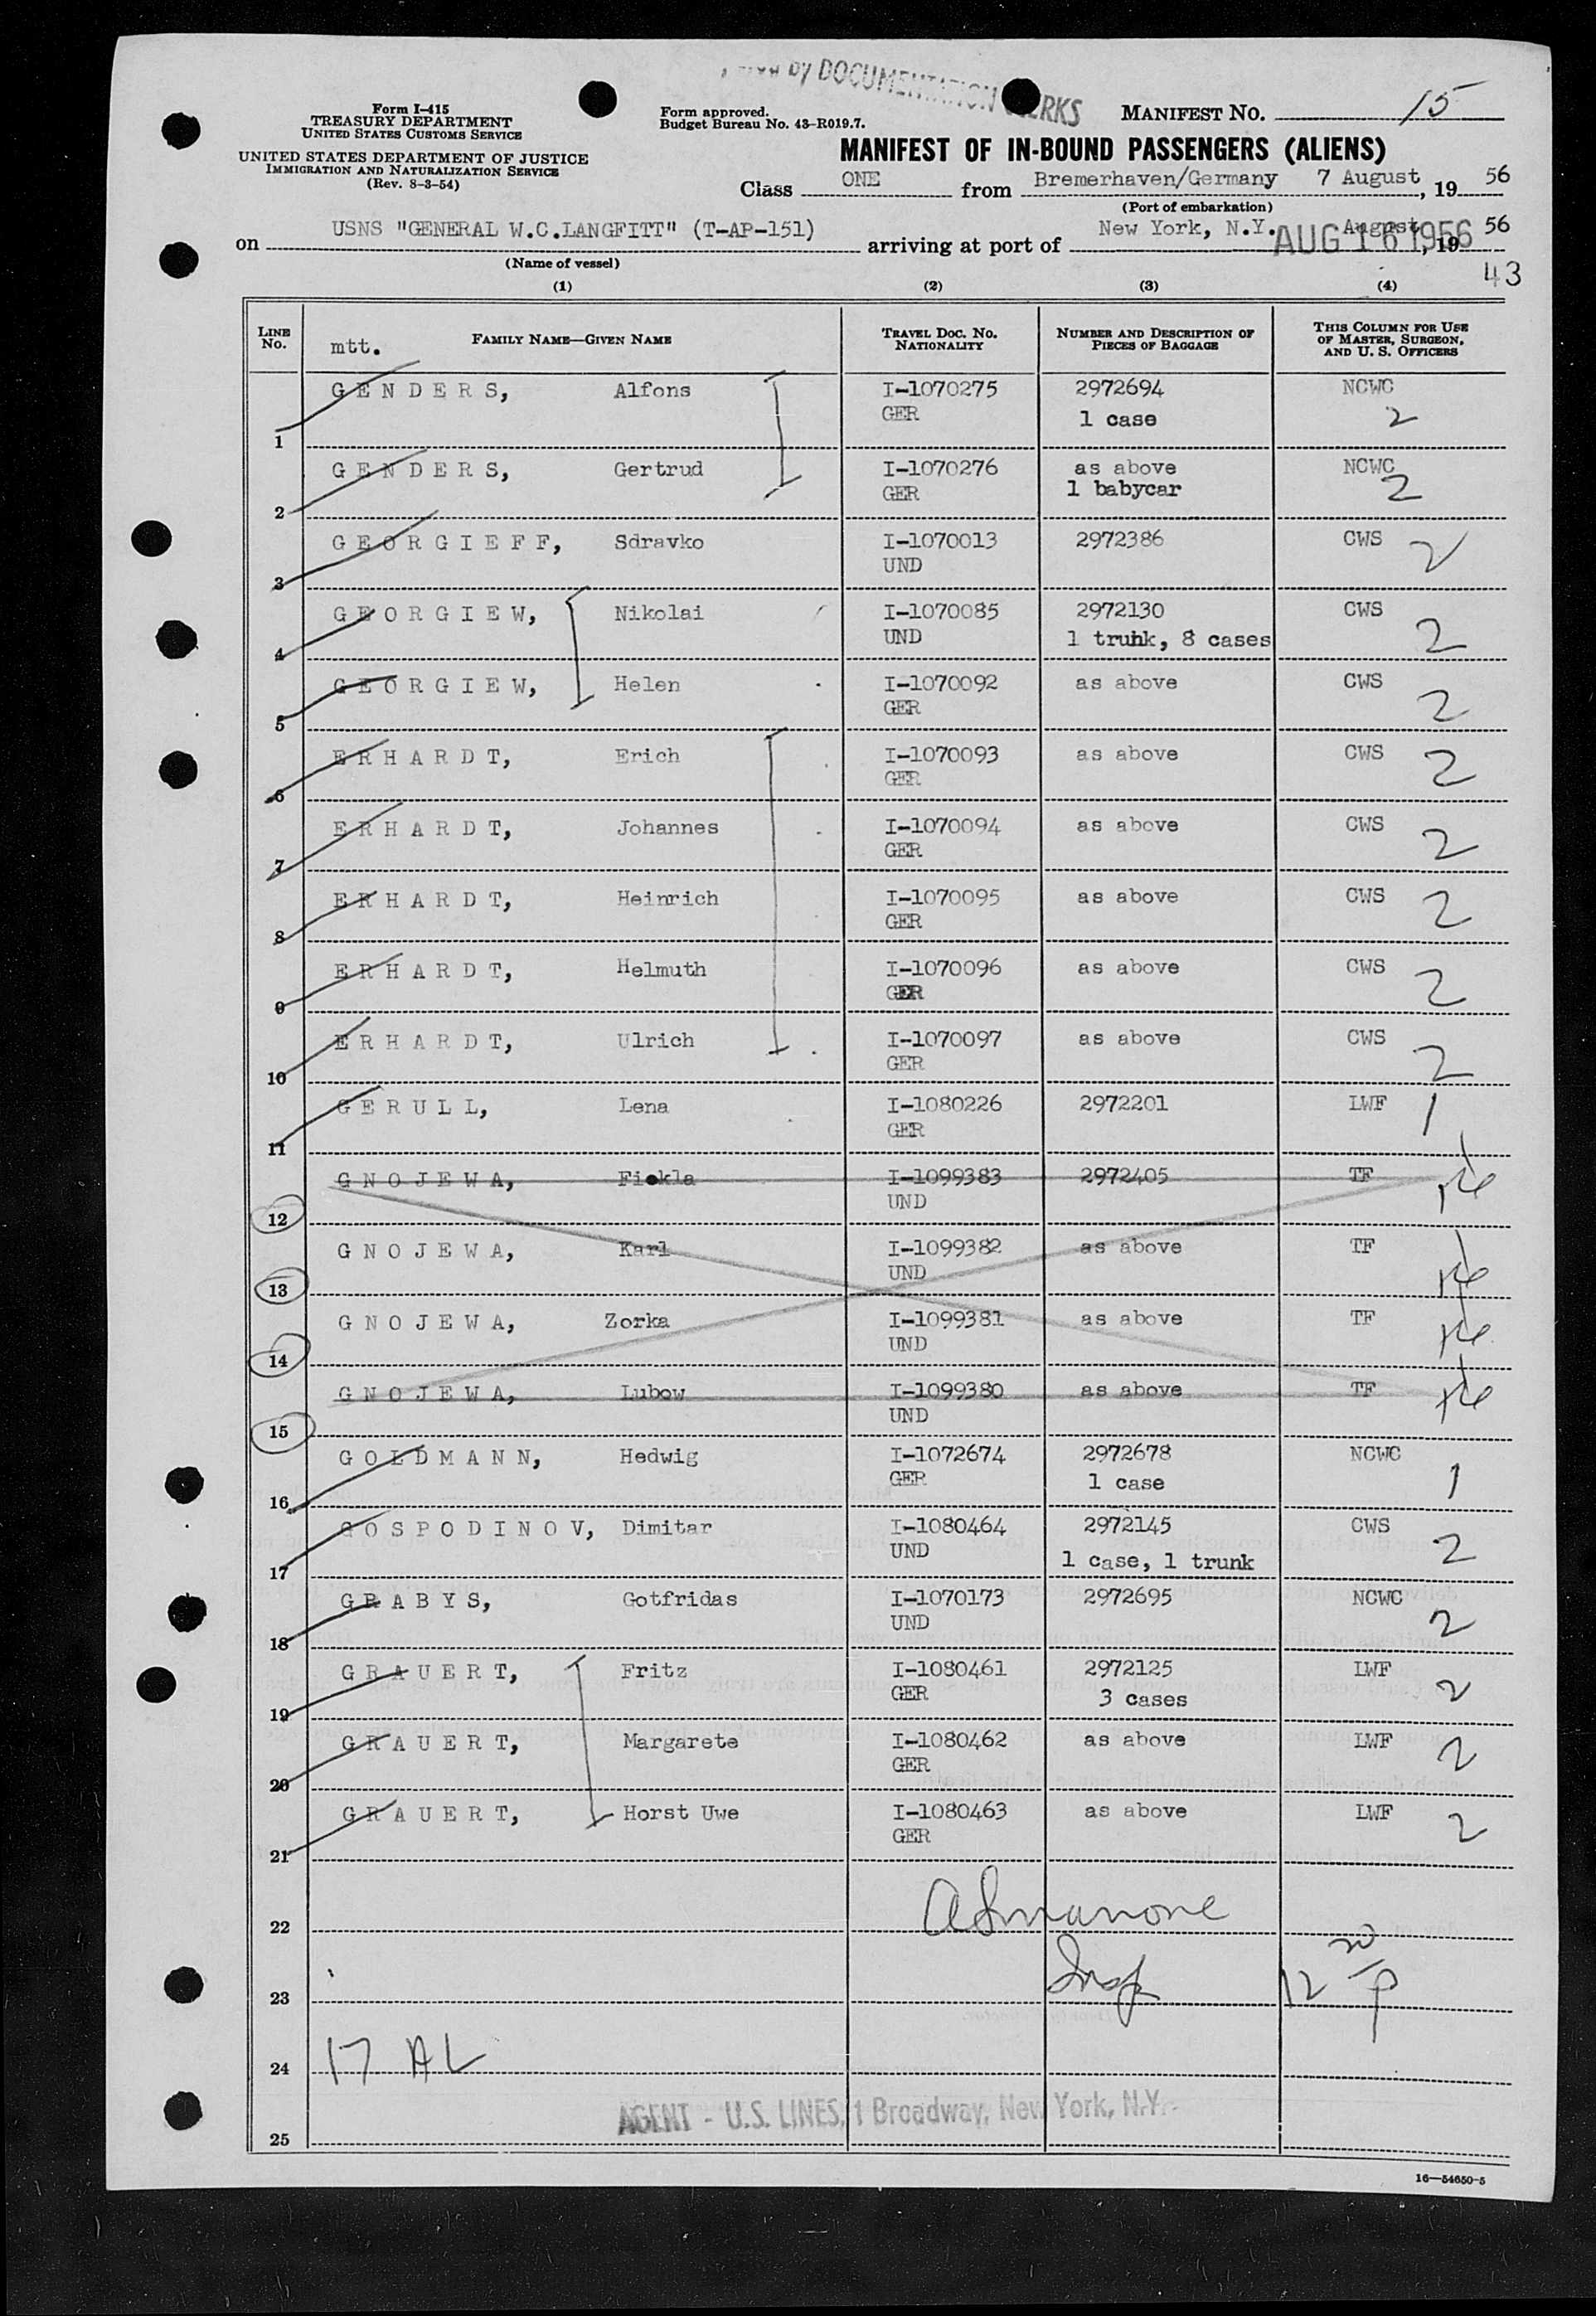 by DOCUMENTATION CLERKS
Form I-415
TREASURY DEPARTMENT
UNITED STATES CUSTOMS SERVICE
UNITED STATES DEPARTMENT OF JUSTICE
IMMIGRATION AND NATURALIZATION SERVICE
(Rev. 8-3-54)
Form approved.
Budget Bureau No. 43-R019.7.
MANIFEST NO. 15
MANIFEST OF IN-BOUND PASSENGERS (ALIENS)
Class ONE from Bremerhaven/Germany 7 August, 19 56
(Port of embarkation)
on USNS "GENERAL W.C.LANGFITT" (T-AP-151) arriving at port of New York, N.Y. August, 19 56
AUG 16 1956
(Name of vessel)
43
(1) (2) (3) (4)
LINE NO. mtt. FAMILY NAME—GIVEN NAME TRAVEL DOC. NO. NATIONALITY NUMBER AND DESCRIPTION OF PIECES OF BAGGAGE THIS COLUMN FOR USE OF MASTER, SURGEON, AND U. S. OFFICERS
G E N D E R S, Alfons I-1070275 2972694 NCWC
1 GER 1 case 2
G E N D E R S, Gertrud I-1070276 as above NCWC
2 GER 1 babycar 2
G E O R G I E F F, Sdravko I-1070013 2972386 CWS
3 UND 2
G E O R G I E W, Nikolai I-1070085 2972130 CWS
4 UND 1 trunk, 8 cases 2
G E O R G I E W, Helen I-1070092 as above CWS
5 GER 2
E R H A R D T, Erich I-1070093 as above CWS
6 GER 2
E R H A R D T, Johannes I-1070094 as above CWS
7 GER 2
E R H A R D T, Heinrich I-1070095 as above CWS
8 GER 2
E R H A R D T, Helmuth I-1070096 as above CWS
9 GER 2
E R H A R D T, Ulrich I-1070097 as above CWS
10 GER 2
G E R U L L, Lena I-1080226 2972201 LWF
11 GER 1
G N O J E W A, Fiokla I-1099383 2972405 TF
12 UND
G N O J E W A, Karl I-1099382 as above TF
13 UND
G N O J E W A, Zorka I-1099381 as above TF
14 UND
G N O J E W A, Lubow I-1099380 as above TF
15 UND
G O L D M A N N, Hedwig I-1072674 2972678 NCWC
16 GER 1 case 1
G O S P O D I N O V, Dimitar I-1080464 2972145 CWS
17 UND 1 case, 1 trunk 2
G R A B Y S, Gotfridas I-1070173 2972695 NCWC
18 UND 2
G R A U E R T, Fritz I-1080461 2972125 LWF
19 GER 3 cases 2
G R A U E R T, Margarete I-1080462 as above LWF
20 GER 2
G R A U E R T, Horst Uwe I-1080463 as above LWF
21 GER 2
22
23 Insp 12 20 p
24 17 AL
AGENT - U.S. LINES, 1 Broadway, New York, N.Y.
25
16—54650-5